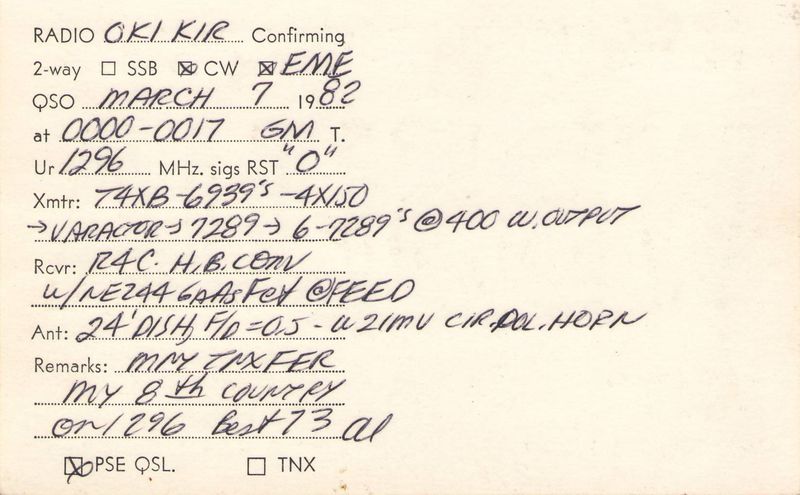 RADIO OK1 KIR Confirming
2-way ☐ SSB ☒ CW ☒ EME
QSO MARCH 7 1982
at 0000-0017 GM T.
Ur 1296 MHz. sigs RST "O"
Xmtr: T4XB-6939's-4X150
→VARACTOR→7289→6-7289's @400 W.OUTPUT
Rcvr: R4C. H.B. CONV
W/NE244 GaAsFet @FEED
Ant: 24' DISH, F/D=0.5- W2IMU CIR.POL.HORN
Remarks: MNY TNX FER
MY 8th COUNTRY
on 1296 Best 73 Al
☒ PSE QSL. ☐ TNX